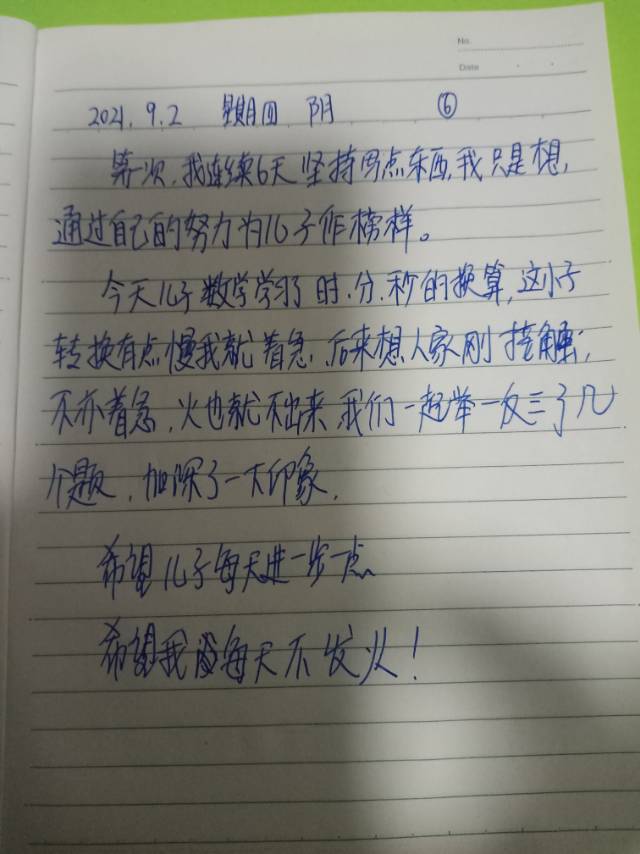 No.
Date
2021.9.2 星期四 阴 ⑥
第一次,我连续6天坚持写点东西,我只是想,
通过自己的努力为儿子作榜样。
今天儿子数学学习了时.分.秒的换算,这小子
转换有点慢我就着急,后来想人家刚接触,
不亦着急,火也就不出来,我们一起举一反三了几
个题,加深了一下印象.
希望儿子每天进一步一点
希望我每天不发火!